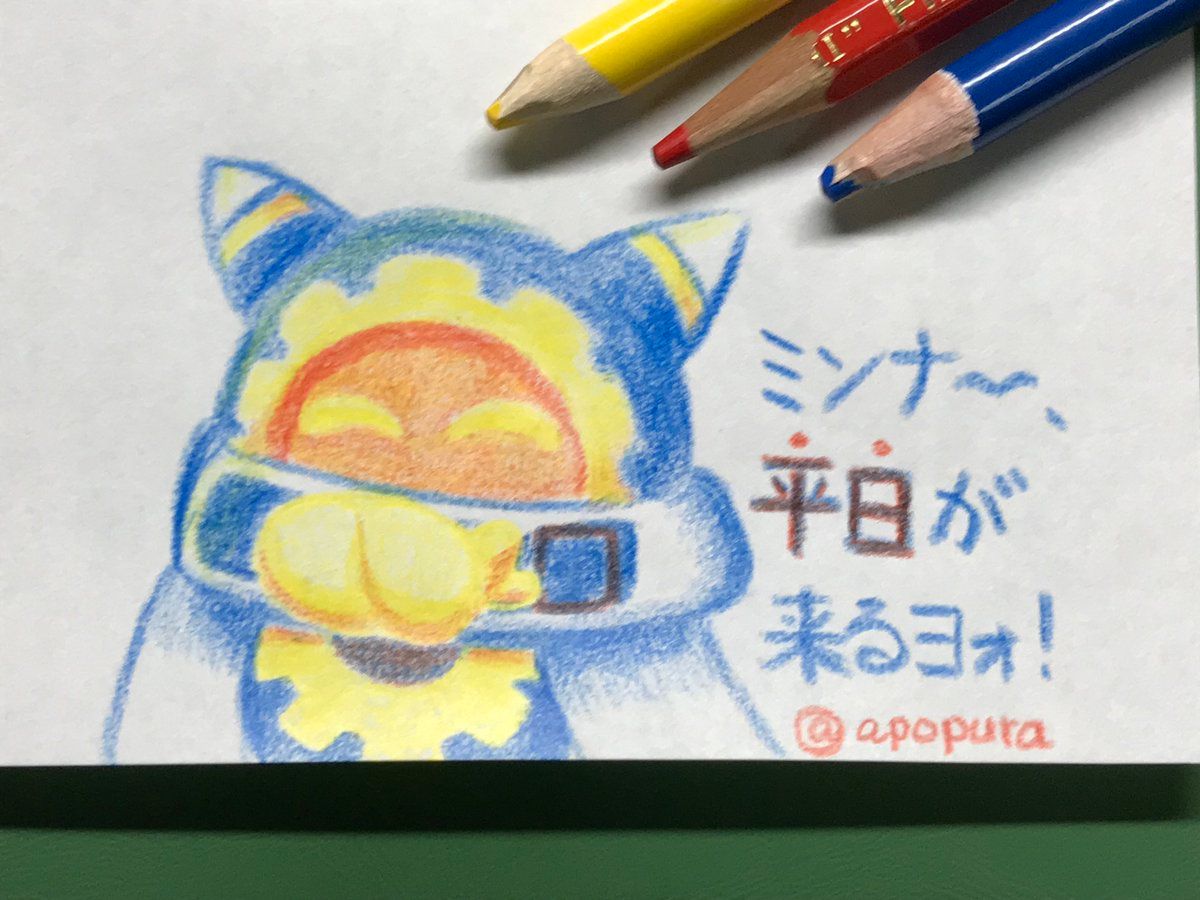 ミンナ〜、
平日が
来るヨォ!
@apopura